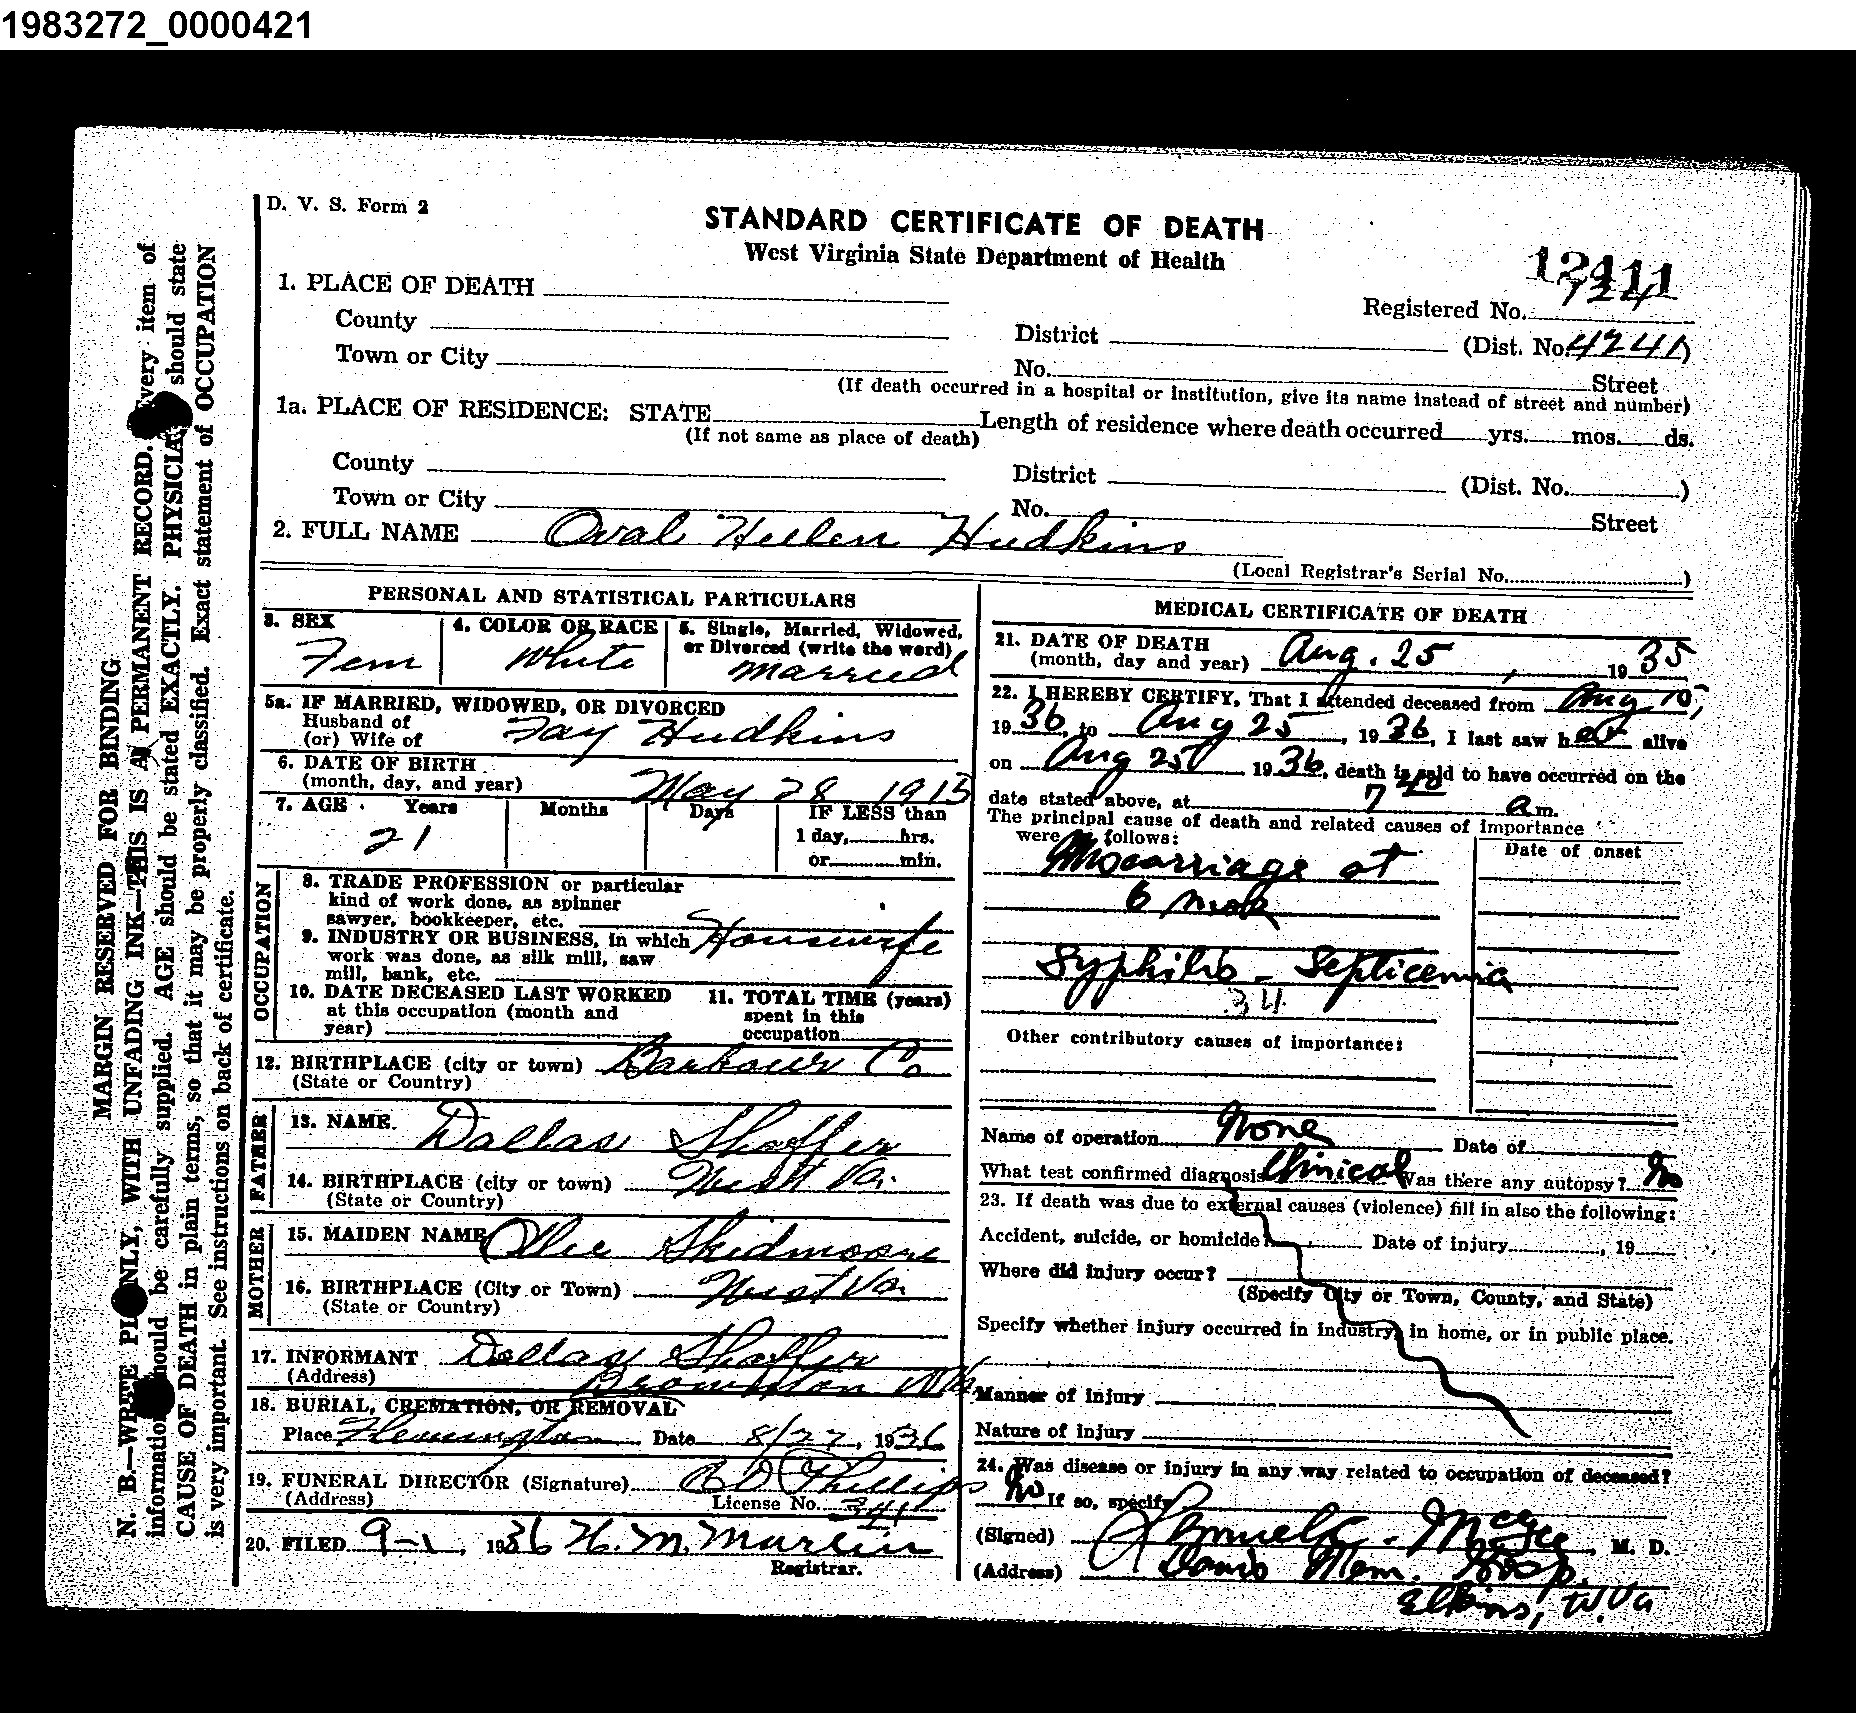 1983272_0000421
D. V. S. Form 2
STANDARD CERTIFICATE OF DEATH
West Virginia State Department of Health
12411
1. PLACE OF DEATH
Registered No. 1241
County
District
(Dist. No. 4241)
Town or City
No.
Street
(If death occurred in a hospital or institution, give its name instead of street and number)
1a. PLACE OF RESIDENCE: STATE
Length of residence where death occurred yrs. mos. ds.
(If not same as place of death)
County
District
(Dist. No. )
Town or City
No.
Street
2. FULL NAME Oval Helen Hudkins
(Local Registrar's Serial No. )
PERSONAL AND STATISTICAL PARTICULARS
3. SEX
Fem
4. COLOR OR RACE
White
5. Single, Married, Widowed,
or Divorced (write the word)
married
5a. IF MARRIED, WIDOWED, OR DIVORCED
Husband of
(or) Wife of
Fay Hudkins
6. DATE OF BIRTH
(month, day, and year) May 28 1915
7. AGE Years
21
Months
Days
IF LESS than
1 day, hrs.
or min.
OCCUPATION
8. TRADE PROFESSION or particular
kind of work done, as spinner
sawyer, bookkeeper, etc.
Housewife
9. INDUSTRY OR BUSINESS, in which
work was done, as silk mill, saw
mill, bank, etc.
10. DATE DECEASED LAST WORKED
at this occupation (month and
year)
11. TOTAL TIME (years)
spent in this
occupation
12. BIRTHPLACE (city or town) Barbour Co
(State or Country)
FATHER
13. NAME. Dallas Shaffer
14. BIRTHPLACE (city or town) West Va.
(State or Country)
MOTHER
15. MAIDEN NAME Olie Skidmoore
16. BIRTHPLACE (City or Town) West Va.
(State or Country)
17. INFORMANT Dallas Shaffer
(Address) Brownton W Va
18. BURIAL, CREMATION, OR REMOVAL
Place Flemington Date 8/27, 1936
19. FUNERAL DIRECTOR (Signature) C D Phillips
(Address)
License No. 341
20. FILED 9-1, 1936 H. M. Marlin
Registrar.
MEDICAL CERTIFICATE OF DEATH
21. DATE OF DEATH
(month, day and year) Aug. 25, 1935
22. I HEREBY CERTIFY, That I attended deceased from Aug 15,
1936, to Aug 25, 1936, I last saw her alive
on Aug 25, 1936, death is said to have occurred on the
date stated above, at 7 40 a m.
The principal cause of death and related causes of importance
were as follows:
Date of onset
Miscarriage at
6 mos
Syphilis - Septicemia
34
Other contributory causes of importance:
Name of operation None Date of
What test confirmed diagnosis Clinical Was there any autopsy? No
23. If death was due to external causes (violence) fill in also the following:
Accident, suicide, or homicide? Date of injury , 19
Where did injury occur?
(Specify City or Town, County, and State)
Specify whether injury occurred in industry, in home, or in public place.
Manner of Injury
Nature of Injury
24. Was disease or injury in any way related to occupation of deceased?
No If so, specify
(Signed) McGee M. D.
(Address) Davis Mem. Hosp.
Elkins, W. Va
MARGIN RESERVED FOR BINDING
N. B.—WRITE PLAINLY, WITH UNFADING INK—THIS IS A PERMANENT RECORD. Every item of
information should be carefully supplied. AGE should be stated EXACTLY. PHYSICIANS should state
CAUSE OF DEATH in plain terms, so that it may be properly classified. Exact statement of OCCUPATION
is very important. See instructions on back of certificate.